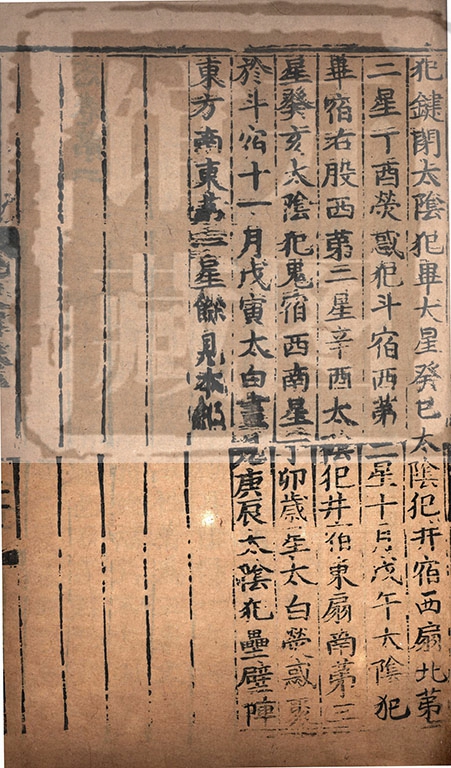 犯鍵閉太陰犯畢大星癸巳太陰犯井宿西扇北第
二星丁酉熒惑犯斗宿西第二星十月戊午太陰犯
畢宿右股西第三星辛酉太陰犯井宿東扇南第三
星癸亥太陰犯鬼宿西南星丁卯歲星太白熒惑聚
於斗宿十一月戊寅太白晝見庚辰太陰犯壘壁陣
東方南東第三星餘見本紀
館藏